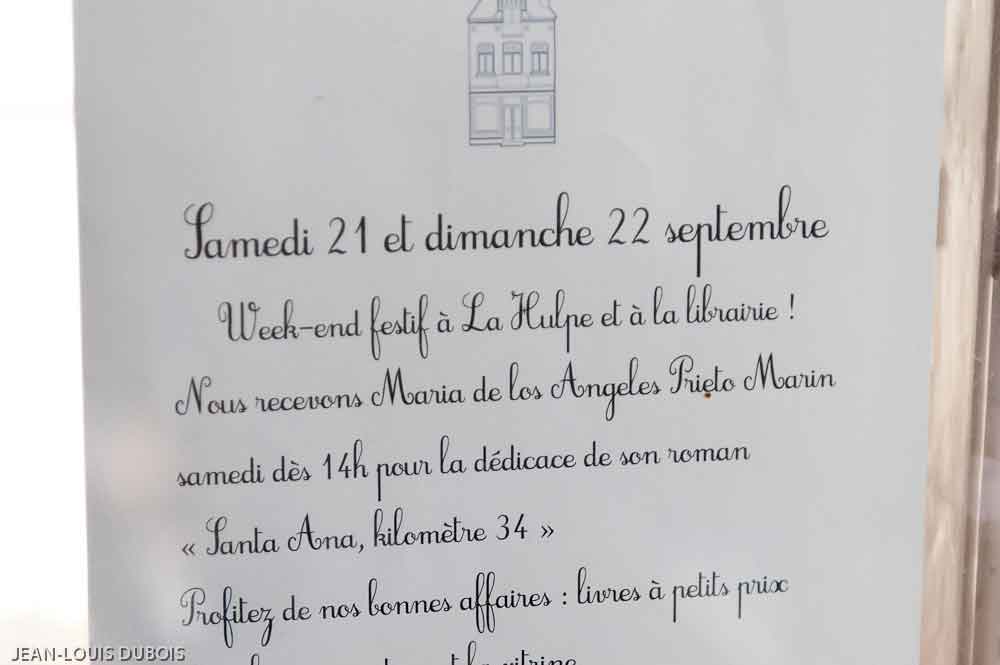 Samedi 21 et dimanche 22 septembre
Week-end festif à La Hulpe et à la librairie !
Nous recevons Maria de los Angeles Prieto Marin
samedi dès 14h pour la dédicace de son roman
« Santa Ana, kilomètre 34 »
Profitez de nos bonnes affaires : livres à petits prix
la vitrine
JEAN-LOUIS DUBOIS